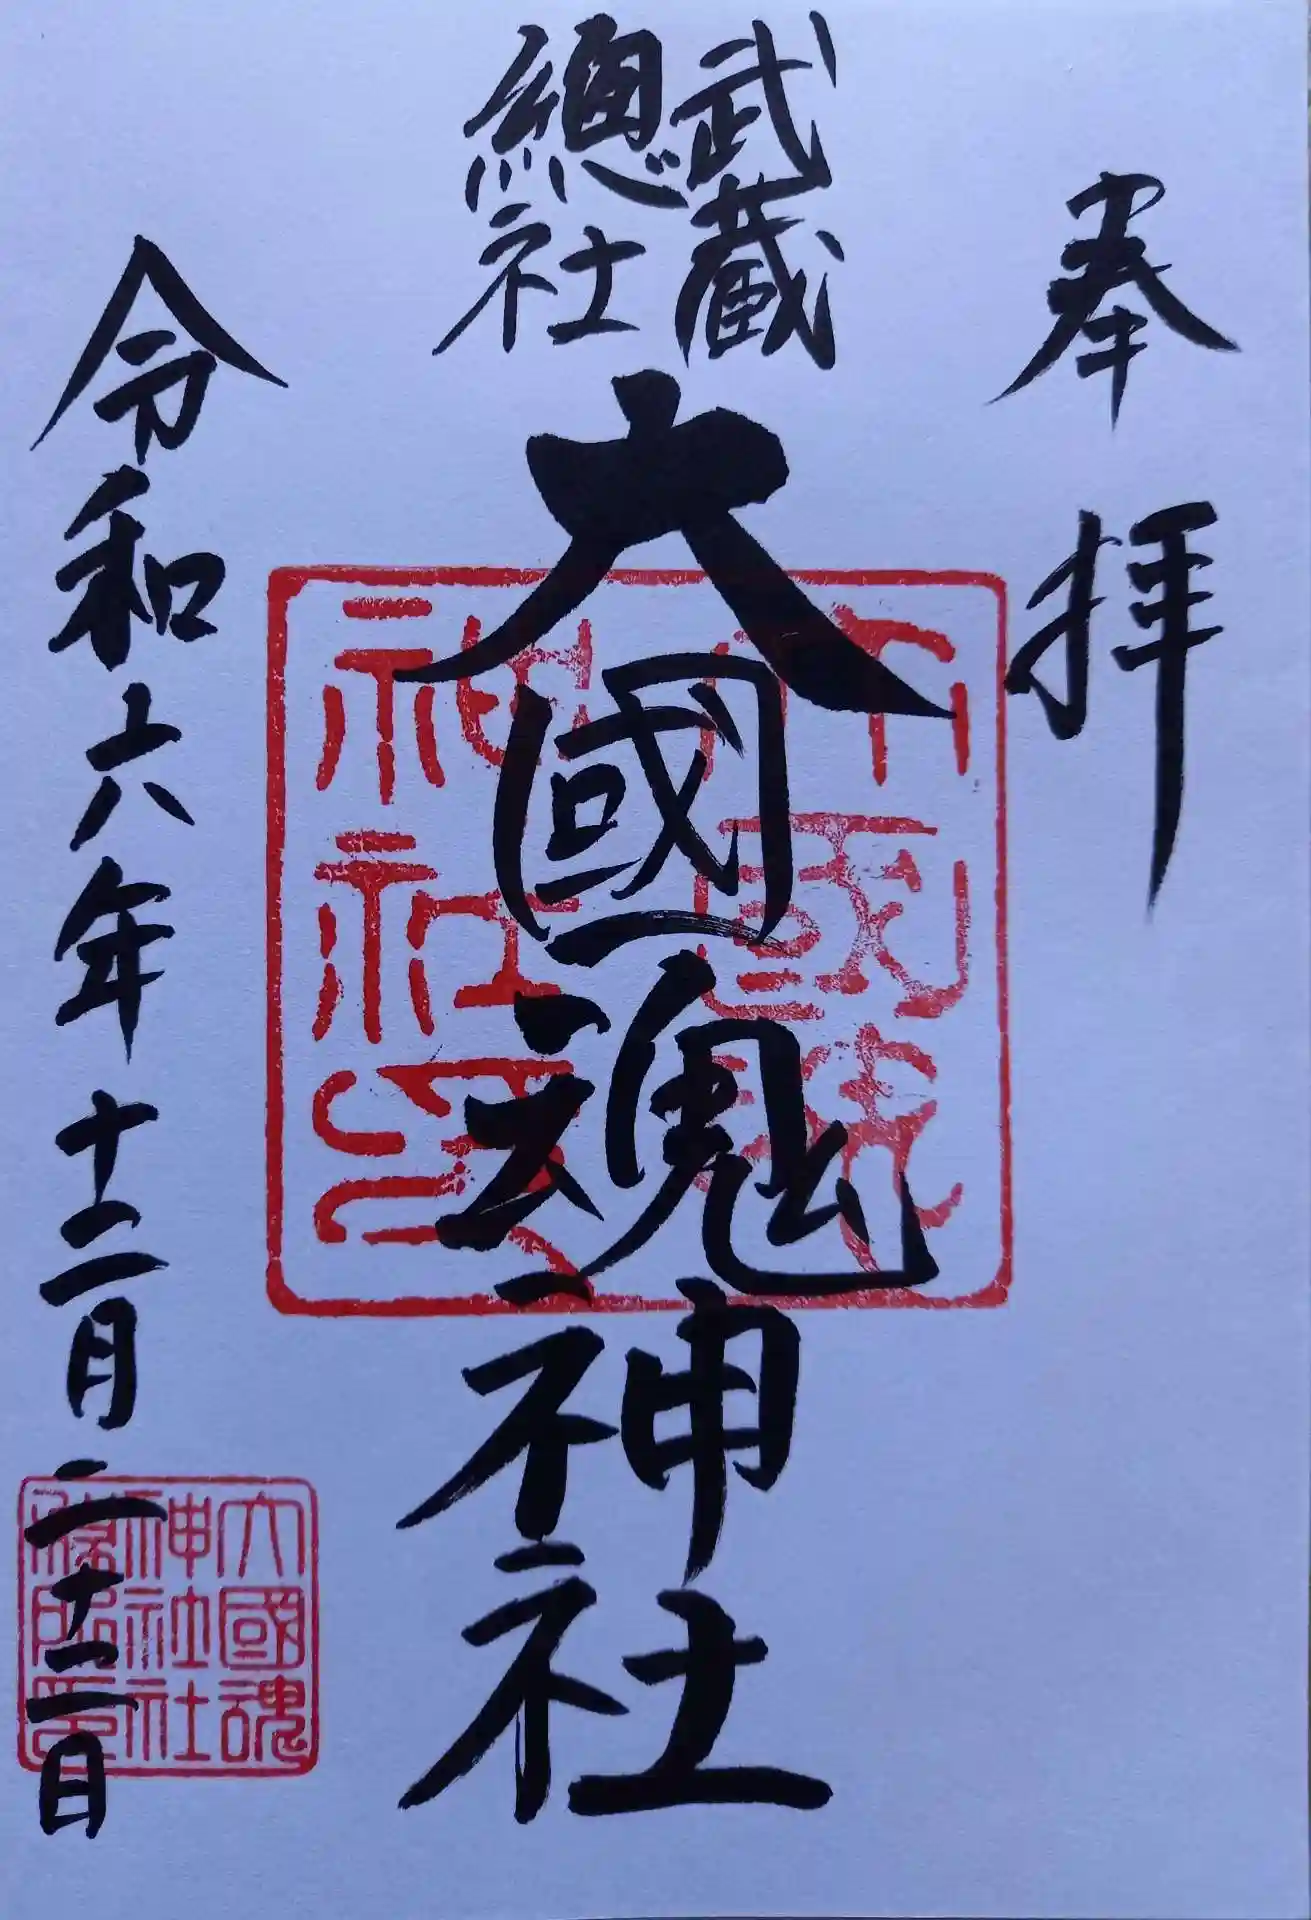 奉拝
武蔵
總社
大國魂神社
令和六年十二月二十二日
大國魂
神社社
務所印